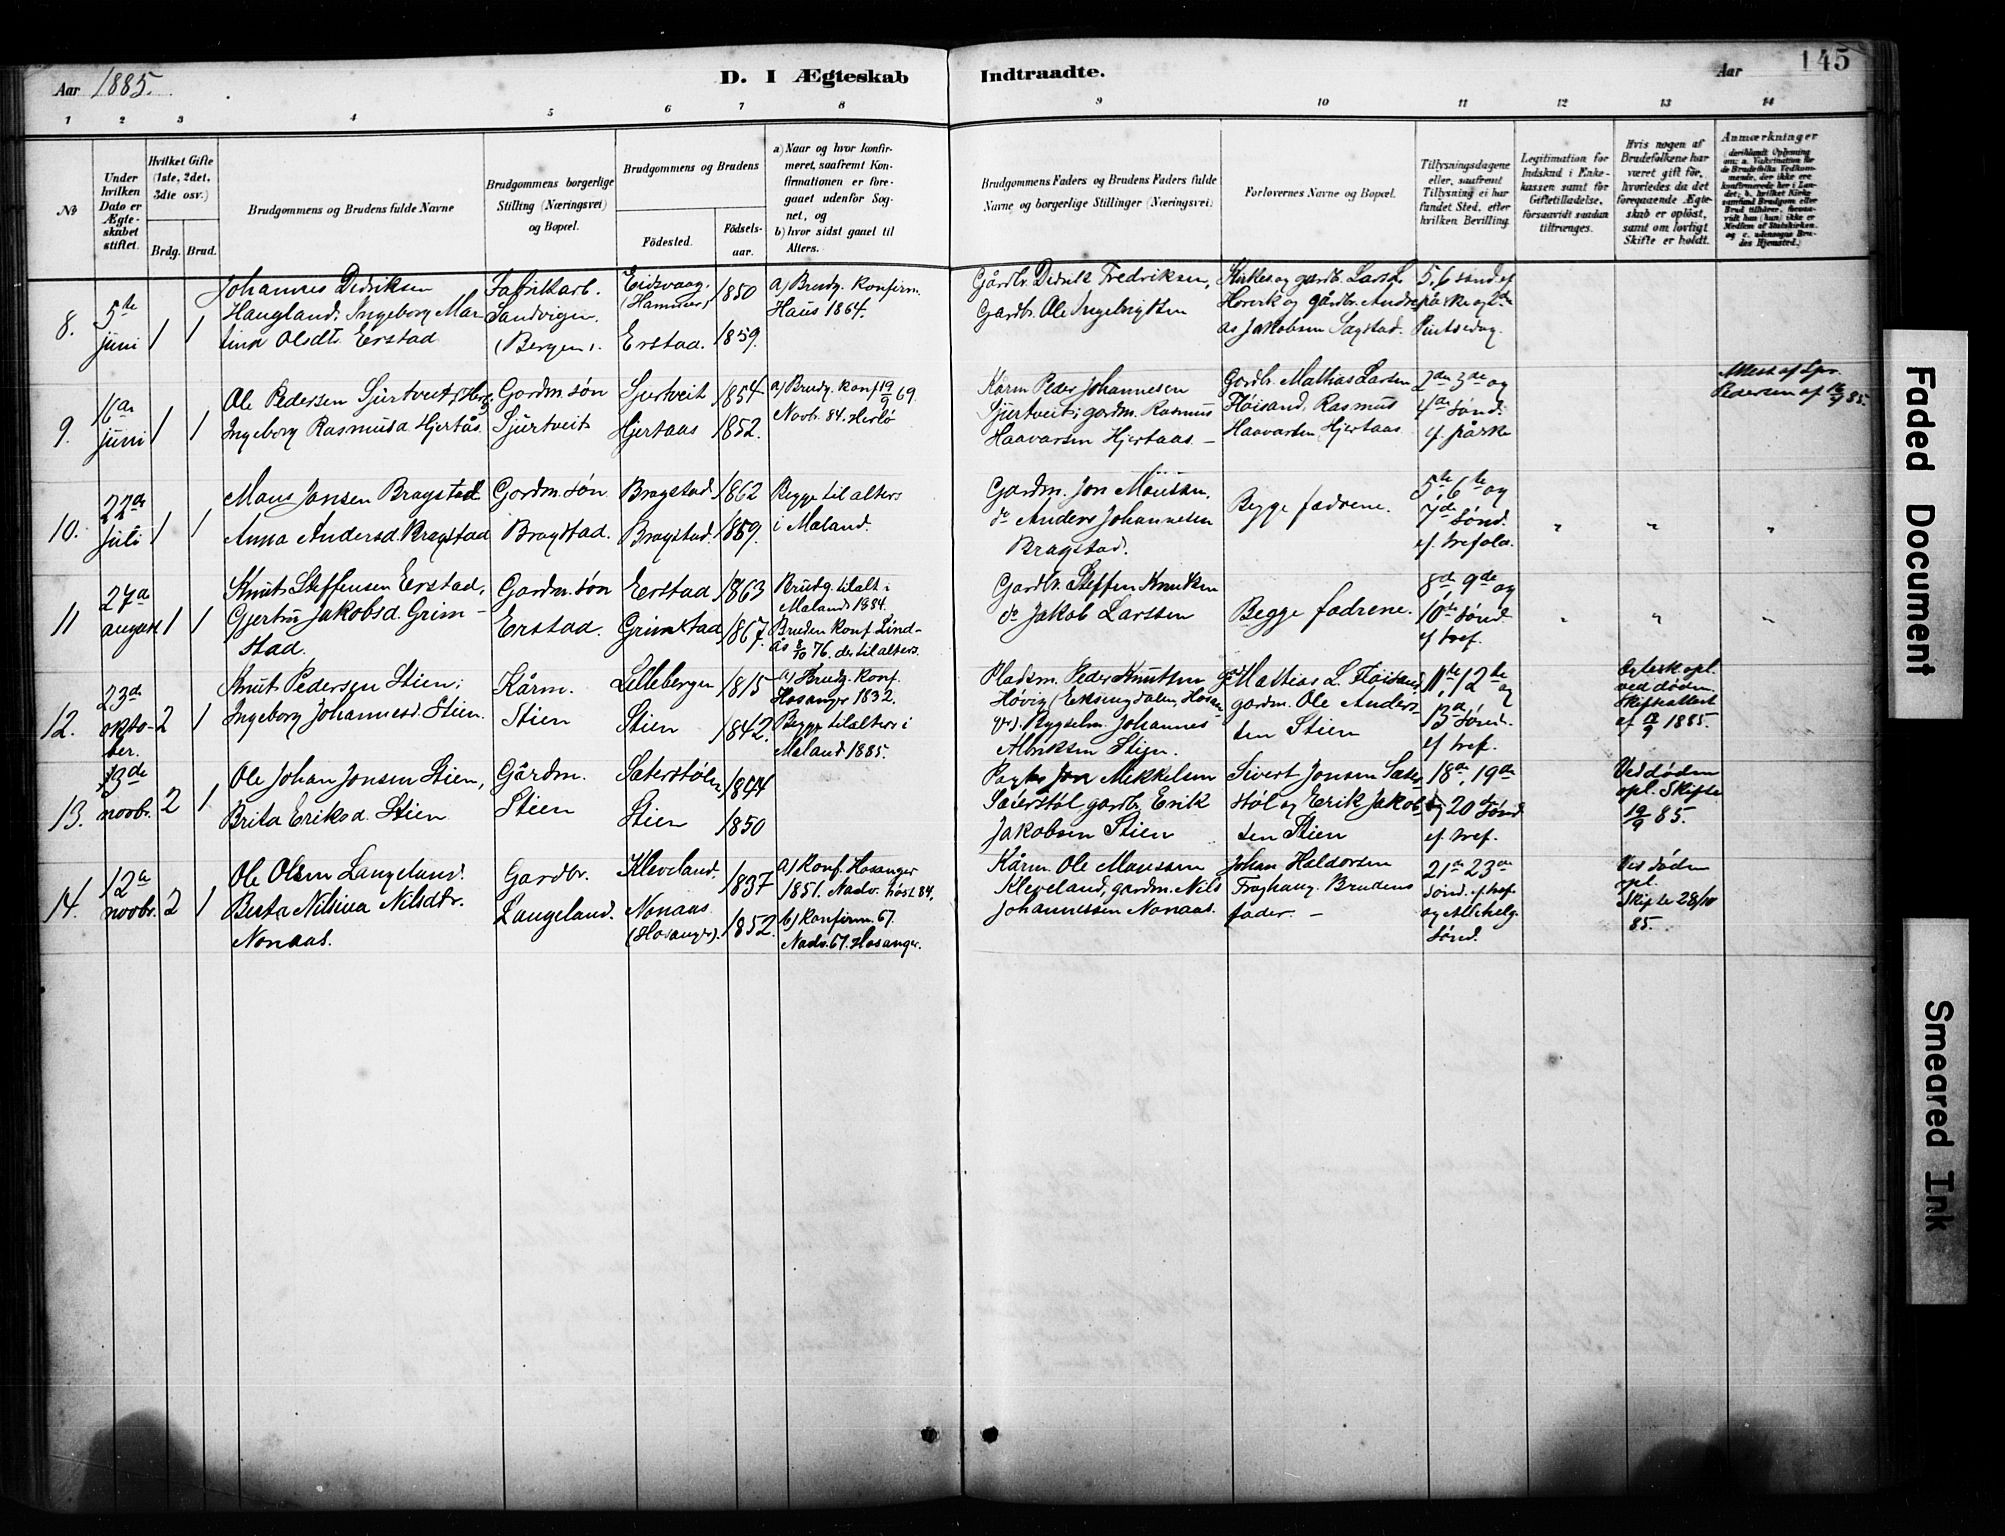 Aar 1885.
D. I Ægteskab Indtraadte.
Aar 145
1 2 3 4 5 6 7 8 9 10 11 12 13 14
№
Under hvilken Dato er Ægteskabet stiftet.
Hvilket Gifte (1ste, 2det, 3die osv.)
Brdg. Brud.
Brudgommens og Brudens fulde Navne
Brudgommens borgerlige Stilling (Næringsvei) og Bopæl.
Brudgommens og Brudens
Fødested.
Fødselsaar.
a) Naar og hvor konfirmeret, saafremt Konfirmationen er foregaaet udenfor Sognet, og
b) hvor sidst gaaet til Alters.
Brudgommens Faders og Brudens Faders fulde Navne og borgerlige Stillinger (Næringsvei)
Forlovernes Navne og Bopæl.
Tillysningsdagene eller, saafremt Tillysning ei har fundet Sted, efter hvilken Bevilling.
Legitimation for Indskud i Enkekassen samt for Giftetilladelse, forsaavidt saadan tiltrænges.
Hvis nogen af Brudefolkene har været gift før, hvorledes da det foregaaende Ægteskab er opløst, samt om lovligt Skifte er holdt.
Anmærkninger
8. 5te juni 1 1
Johannes Didriksen
Haugland. Ingeborg Mar
tina Olsdtr Erstad
Fabrikarb.
Sandvigen.
(Bergen).
Eidsvaag.
(Hammer)
Erstad.
1850
1859.
a) Brudg. Konfirm.
Haus 1864.
Gårdbr. Didrik Fredriksen,
Gardbr. Ole Ingebrigtsen
Kirkes. og gardb. Lars L.
Hovik og gårdbr. Andre
as Jakobsen Sagstad.
5, 6 sønd. ef
påske og 2den
Pintsedag.
9. 16de juni 1 1
Ole Pedersen Sjurtveit
Ingeborg Rasmusd Hjertås.
Gardm. søn
Sjurtveit
Sjurtveit
Hjertaas
1854
1852.
a) Brudg. Konf 19/9 69.
Novb. 84. Herlø
Kårm Peder Johannesen
Sjurtveit; gardm. Rasmus
Haavarsen Hjertaas. —
Gardbr. Mathias Larsen
Høisand, Rasmus
Haavarsen Hjertaas
2den 3de og
4de Sønd.
ef. påske
Attest af Spr.
Pedersen af
10. 22de juli 1 1
Mons Jansen Bragstad
Anna Andersd. Bragstad
Gardm. søn
Bragstad.
Bragstad
Bragstad.
1862
1859.
Begge til alters
i Maland.
Gardm. Jon Monsen.
do Anders Johannesen
Bragstad.
Begge fædrene.
5te, 6te og
7de Sønd.
ef. trefold.
" " "
11 27de august 1 1
Knut Steffensen Erstad,
Gjertru Jakobsd. Grim-
stad.
Gardm. søn
Erstad.
Erstad
Grimstad
1863
1867.
Brudg. tilalt. i
Maland 1884.
Bruden Konf. Lind-
ås 8/10 76. der til alters.
Gardbr. Steffen Knudsen
do Jakob Larssen
Begge fædrene.
8de, 9de og
10de Sønd.
ef tref.
" " "
12. 23de oktober. 2 1
Knut Pedersen Stien;
Ingeborg Johannesd. Stien.
Kårm.
Stien
Lilleberger
Stien
1815
1842.
a) Brudg. Konf.
Hosanger 1832.
Begge tilalters i
Maland 1885.
Pladsm. Peder Knutsen
Høvig (Eksingdalen, Hosan
ger). Bygselm. Johannes
Alriksen Stien.
Mathias L. Høisand,
gardm. Ole Anders
sen Stien
11te, 12te og
13de Sønd.
ef tref.
Egtesk. opl.
ved døden.
Skifteattest
af 1885.
13. 13de novbr. 2 1
Ole Johan Jonsen Stien,
Brita Eriksd. Stien
Gårdm.
Stien
Sæterstølen
Stien
1844
1850
Jon Mikkelsen
Sæterstøl gardb. Erik
Jakobsen Stien
Sivert Jonsen Sæter
støl og Erik Jakob
sen Stien
18de, 19de
og 20 Sønd.
ef tref.
Ved døden
opl. Skifte
19/9 85.
14. 12te novbr. 2 1
Ole Olsen Langeland.
Berta Nilsina Nilsdtr.
Nonaas.
Gardbr.
Langeland.
Kleveland.
Nonaas
(Hosanger).
1837
1852.
a) Konf. Hosanger
1851. Nadv. høst 84.
b) Konfirm. 67.
Nadv. 67. Hosanger.
Kårm. Ole Monssen
Kleveland, gardm. Nils
Johannessen Nonaas.
Johan Haldorsen
Froghaug. Brudens
fader. —
21de 23de
Sønd. ef tref
og Allehelg.
Sønd.
Ved døden
opl.
Skifte 28/10
85.
Faded Document
Smeared Ink